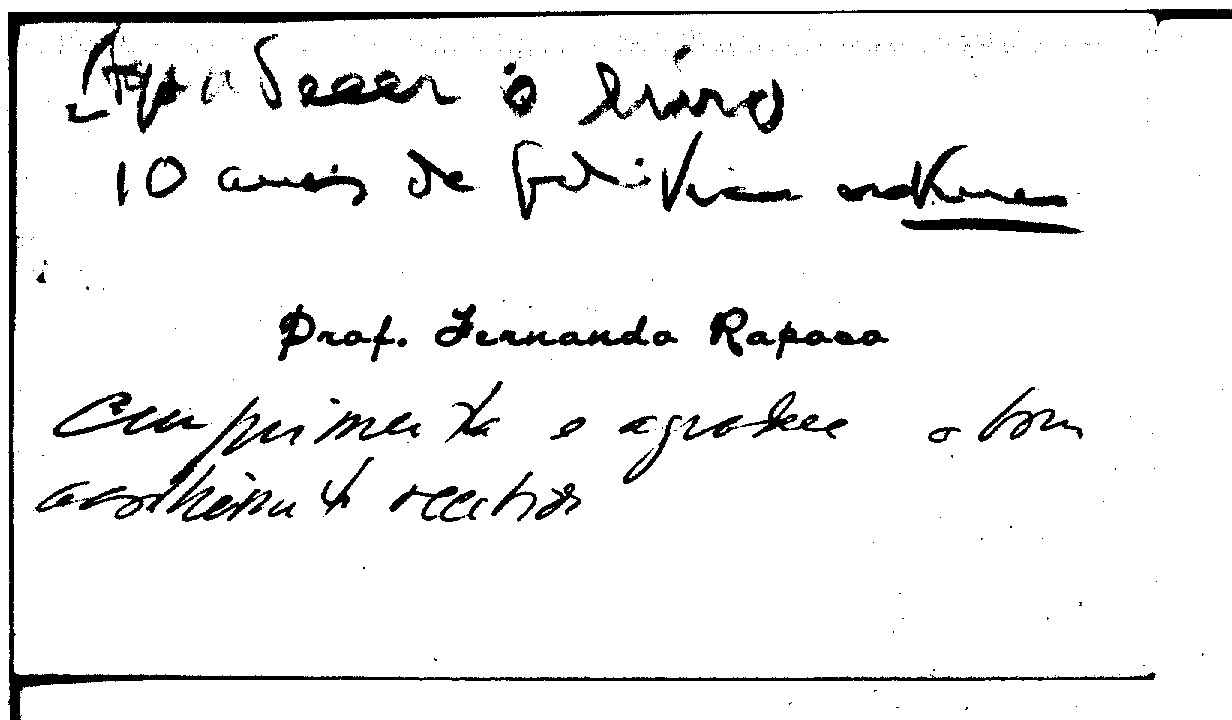 Agradecer o livro
10 anos de Política externa
Prof. Fernando Raposo
Cumprimenta e agradece o bom
acolhimento recebido